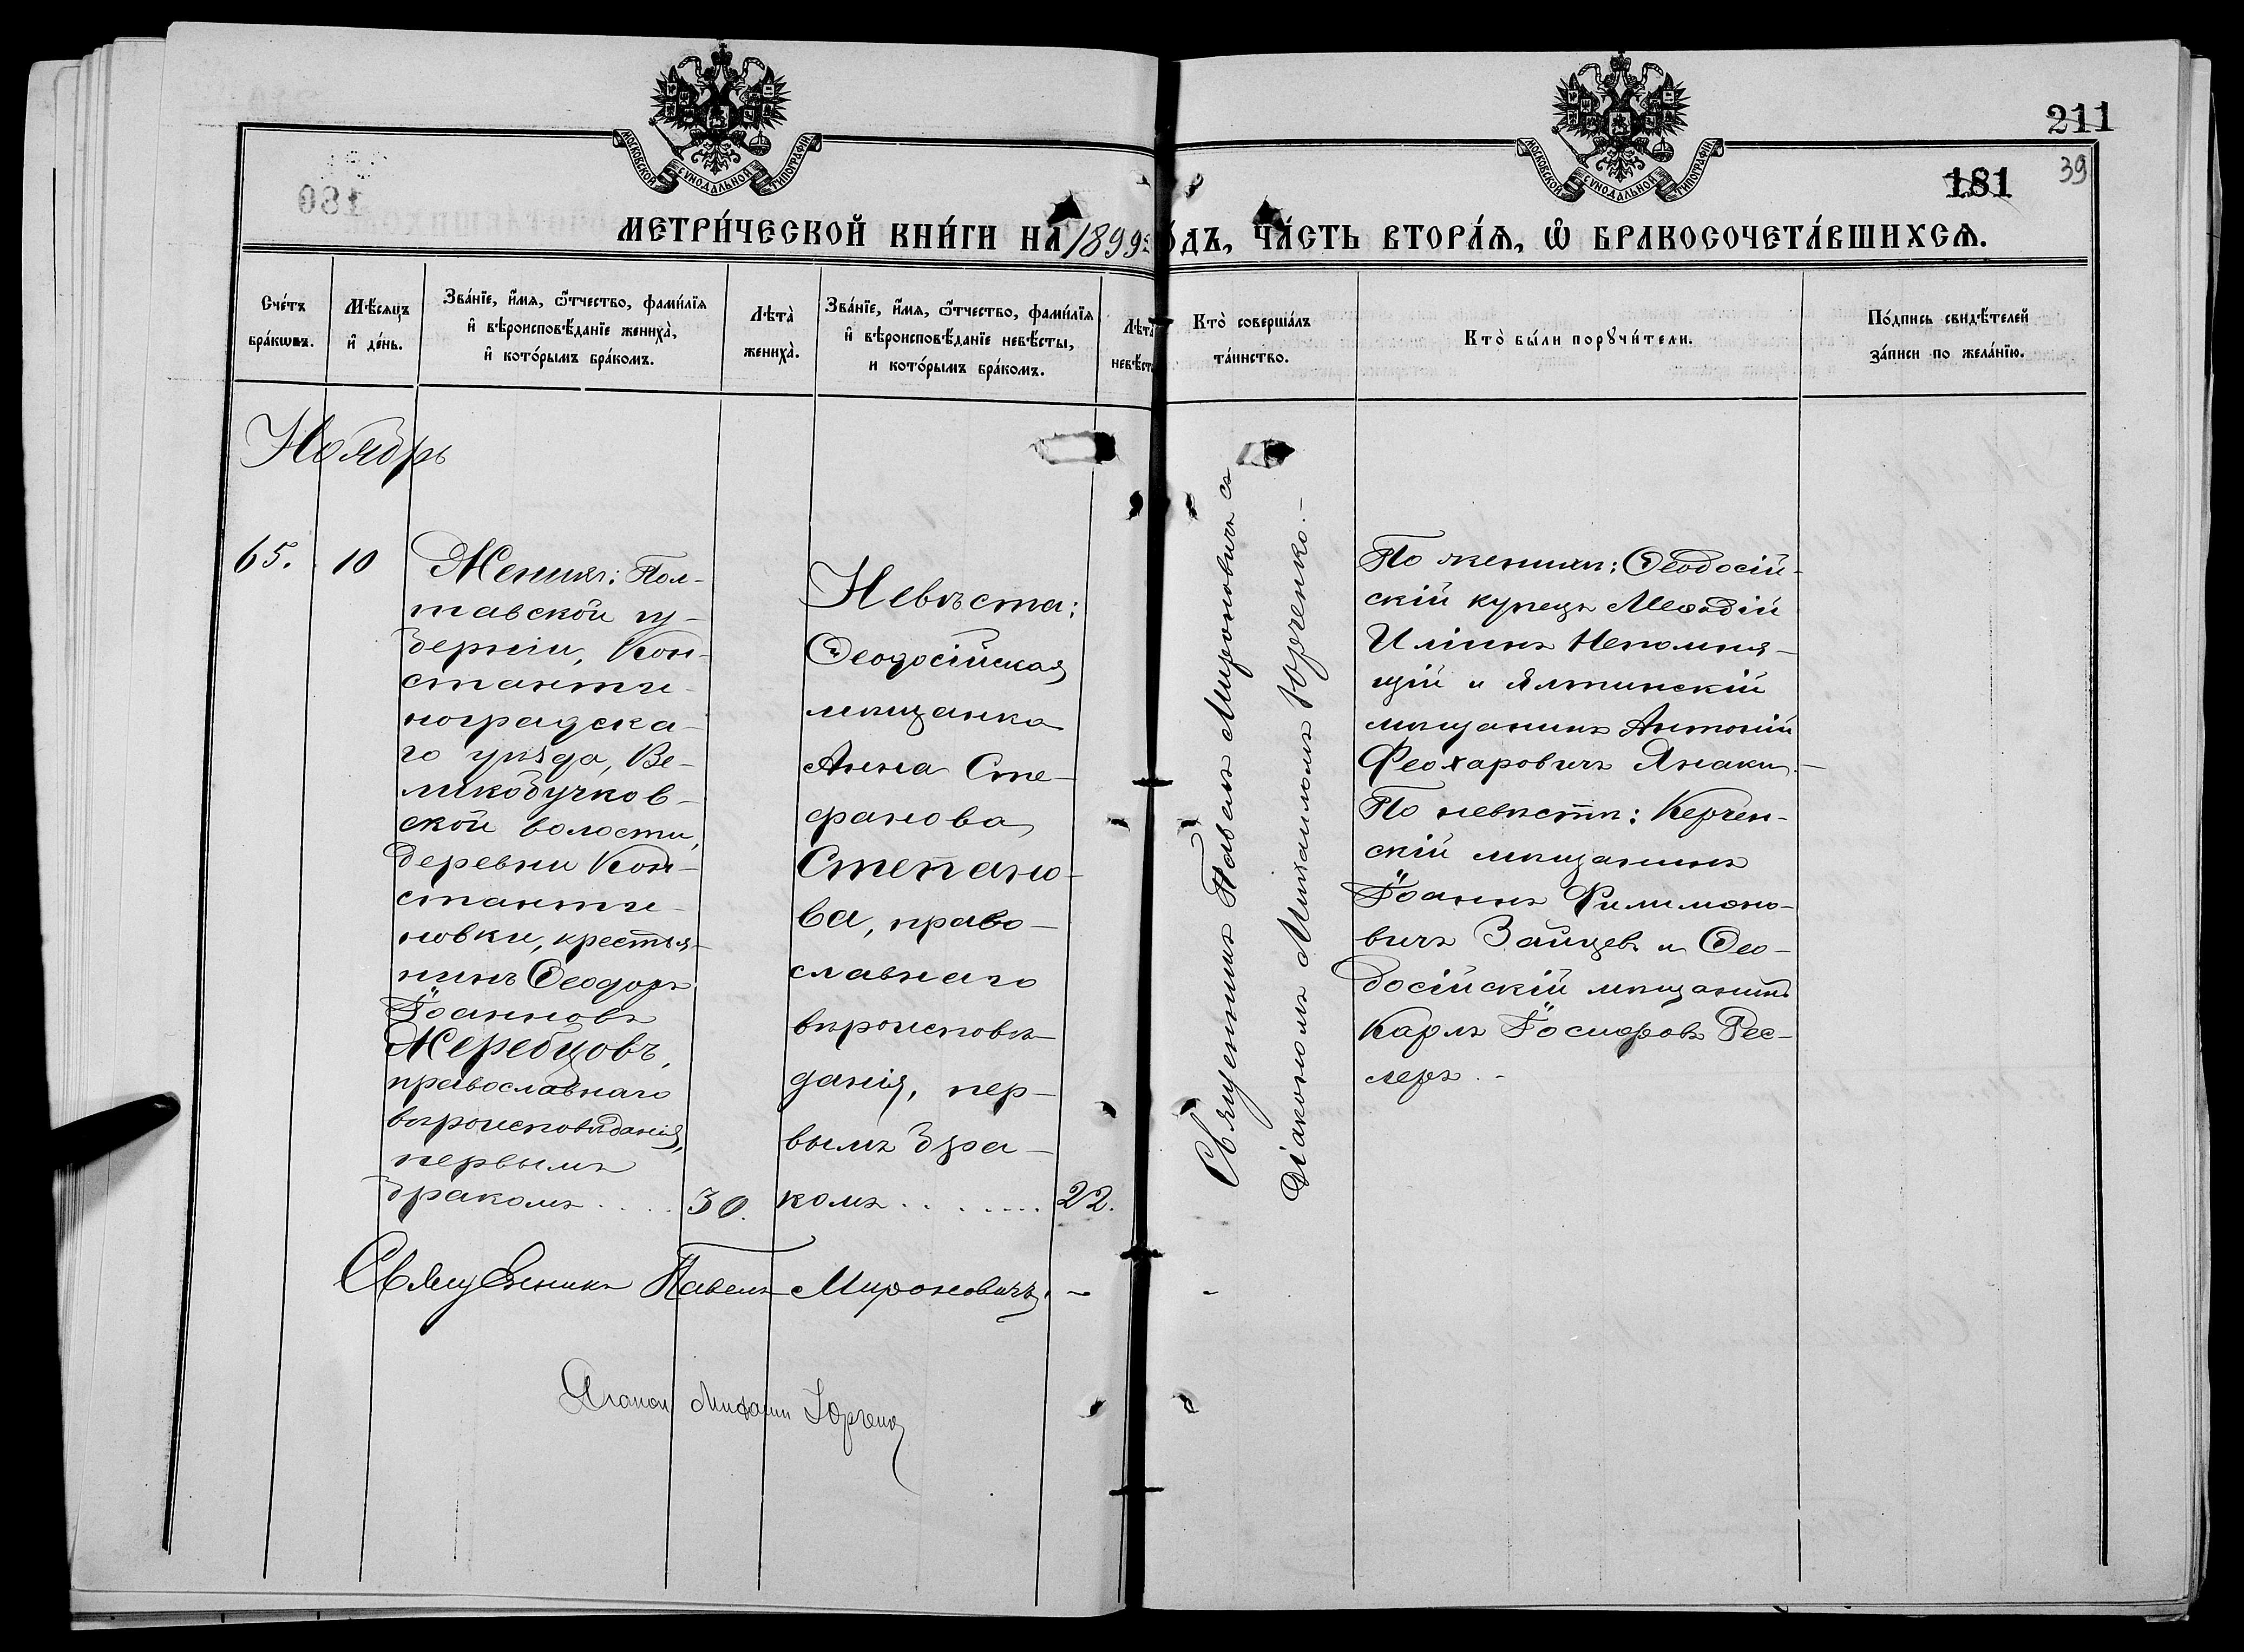 МОСКОВСКОЙ СѴНОДАЛЬНОЙ ТИПОГРАФІИ
МОСКОВСКОЙ СѴНОДАЛЬНОЙ ТИПОГРАФІИ
211
181
39
180
МЕТРИ́ЧЕСКОЙ КНИ́ГИ НА 1899 г҃о́дъ, ЧА́СТЬ ВТОРА́Ѧ, Ѽ БРАКОСОЧЕТА́ВШИХСѦ.
Сче́тъ
бра́кѡвъ.
Мѣ́сяцъ
и҆ де́нь.
Зва́нїе, и҆́мя, ѻ҆́тчество, фами́лїя
и҆ вѣроисповѣ́данїе жениха̀,
и҆ кото́рымъ бра́комъ.
Лѣта̀
жениха̀.
Зва́нїе, и҆́мя, ѻ҆́тчество, фами́лїя
и҆ вѣроисповѣ́данїе невѣ́сты,
и кото́рымъ бра́комъ.
Лѣта
невѣст
Кто̀ соверша́лъ
та́инство.
Кто̀ бы́ли порꙋчи́тели.
По́дпись свидѣ́телей
за́писи по жела́нїю.
Ноябрь
65.
10
Женихъ: Пол-
тавской гу-
берніи, Кон-
станти-
ноградска-
го уѣзда, Ве-
ликобучков-
ской волости,
деревни Кон-
станти-
новки, крестья-
нинъ Ѳеодоръ
Іоанновъ
Жеребцовъ,
православнаго
вѣроисповѣданія,
первымъ
бракомъ....
30.
Невѣста:
Ѳеодосійская
мѣщанка
Анна Сте-
фанова
Степано-
ва, право-
славнаго
вѣроисповѣ-
данія, пер-
вымъ бра-
комъ........
22.
Священникъ Павелъ Мироновичъ съ
Діакономъ Михаиломъ Юрченко.-
По женихѣ: Ѳеодосій-
скій купецъ Меѳодій
Илiинъ Непомня-
щій и Ялтинскій
мѣщанинъ Антоній
Феохаровичъ Янаки.-
По невѣстѣ: Керчен-
скій мѣщанинъ
Іоаннъ Филимоно-
вичъ Зайцевъ и Ѳео-
досійскій мѣщанинъ
Карлъ Іосифовъ Рес-
леръ.-
Священникъ Павелъ Мироновичъ.-
Діаконъ Михаилъ Юрченко